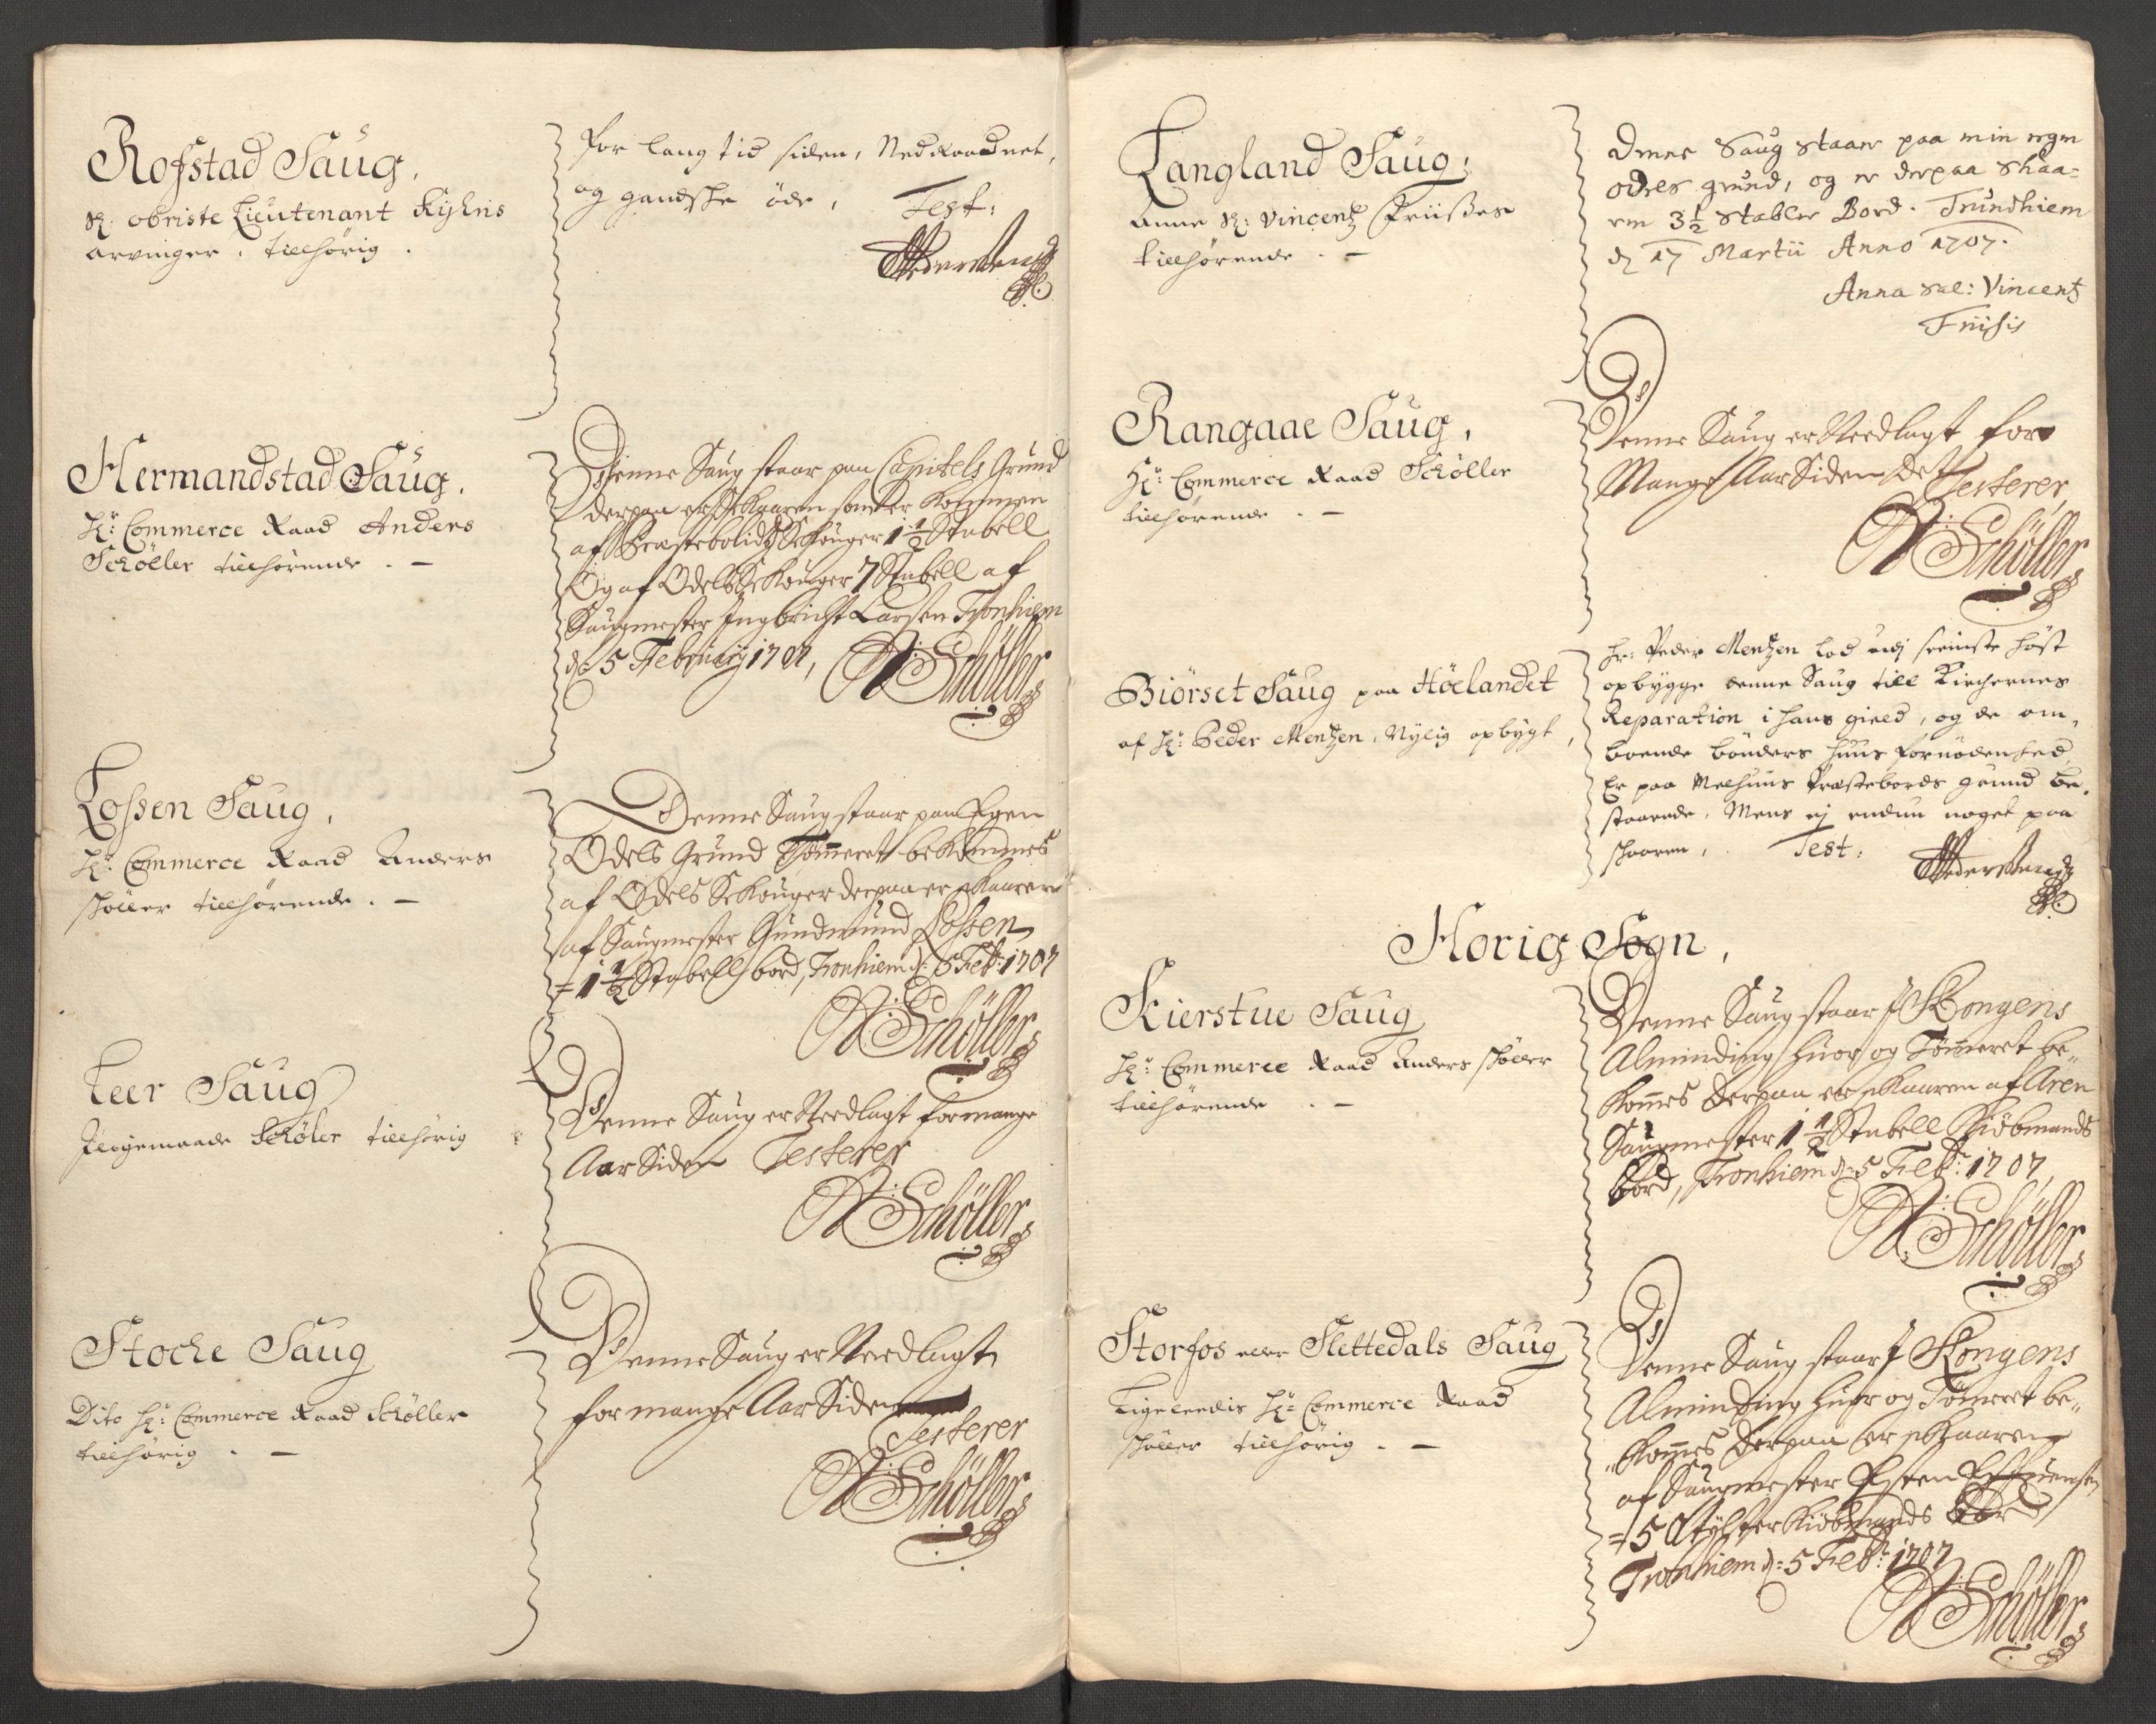 Rofstad Saug,
Sl: obriste Lieutenant Kyhns
arvinger, tilhørig.
for lang tid siden, Nedraadnet,
og gandske øde, Test:
Hermandstad Saug,
Hr: Commerce Raad Anders
Schøller tilhørende. –
Denne Saug staar paa Capitels Grund
derpaa er Skaaren som er kommen
af Præstebolids Skouger 1½ Stabell
Og af Odels Skouger 7 Stabell af
Saugmester Ingbricht Larsen Tronhiem
d: 5 February 1707, A Schøller
Lossen Saug,
Hr: Commerce Raad Anders
skøller tilhørende. –
Denne Saug staar paa Egen
Odels Grund Tømmeret bekommes
af Odels Skouger derpaa er skaaren
af Saugmester Gundmund Lossen
= 1½ Stabell bord, Tronhiem d: 5 Feb: 1707
A Schøller
Leer Saug
Jligemaade Schøler tilhørig
Denne Saug er Needlagt for mange
Aar Siden Testerer
A Schøller
Stocke Saug
Dito Hr: Commerce Raad Schøller
tilhørig. –
Denne Saug er Needlagt
for mange Aar Siden
Testerer
A Schøller
Langland Saug,
Anne Sl: Vincentz Friisses
tilhørende. –
Denne Saug staar paa min egen
odels grund, og er derpaa skaa-
ren 3½ Stabler Bord. Trundhiem
d 17 Martii Anno 1707.
Anna Sal: Vincentz
Friisis
Rangaae Saug,
Hr: Commerce Raad Schøller
tilhørende. –
Denne Saug er Needlagt for
Mange Aar Siden Det Testerer
A Schøller
Biörset Saug paa Höelandet
af Hr: Peder Mentzen, Nylig opbygt,
Hr: Peder Mentzen lod udj seeniste høst
opbygge denne Saug till Kirchernes
Reparation i hans gield, og de om-
boende bønders huus fornødenhed,
Er paa Melhuus Præstebords grund be-
staaende, Mens ej endnu noget paa
skaaren, Test:
Horig Sogn,
Kierstue Saug
Hr: Commerce Raad Anders skøller
tilhørende. –
Denne Saug staar J Kongens
Alminding huor og Tømmeret be-
kommes Derpaa er skaaren af Aren
Saugmester 1½ Stabell Kiøbmands
bord, Tronhiem d: 5 Feb: 1707,
A Schøller
Storfos eller Slettedals Saug
Ligeleedis Hr: Commerce Raad
skøller tilhørig. –
Denne Saug staar J Kongens
Alminding huor og Tømeret be-
kommes Derpaa er skaaren
af Saugmester Esten
= 5 Tylter Kiøbmands bord
Tronhiem d: 5 Feb: 1707
A Schøller